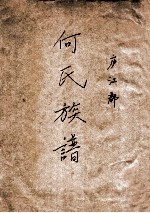 庐江郡
何氏族譜